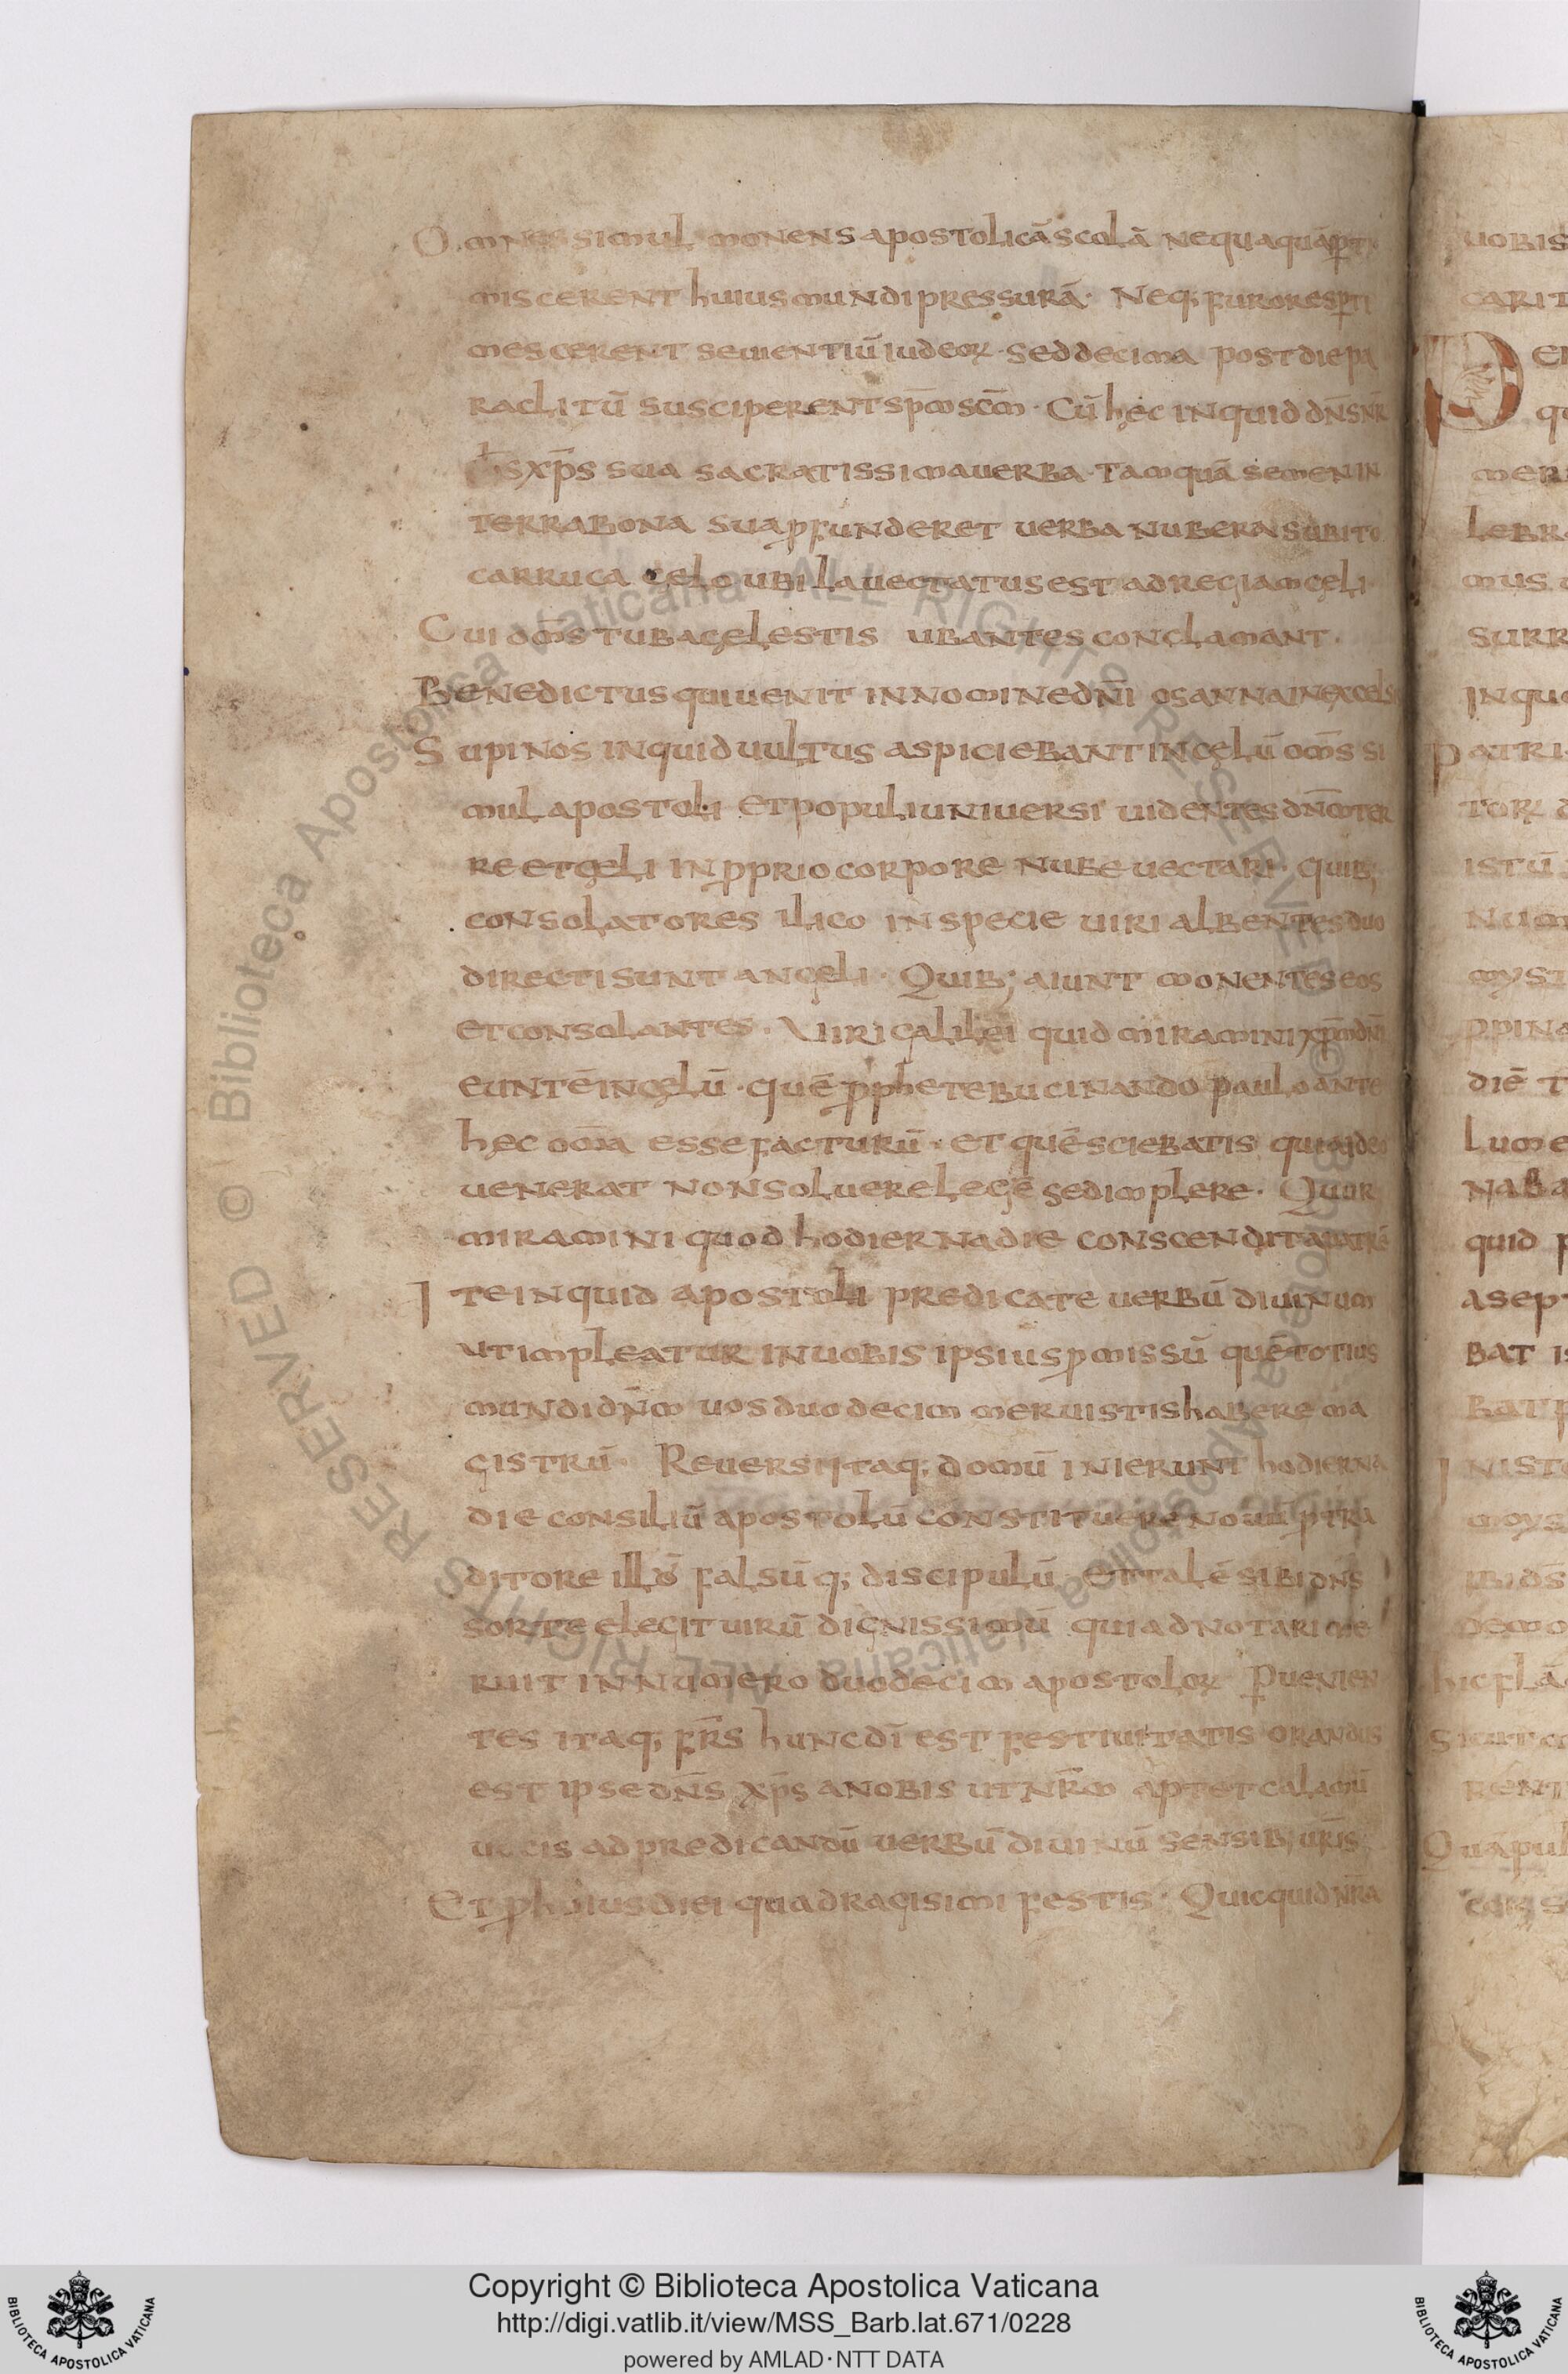 Omnes simul monens apostolicā scolā nequaquā ꝑti
miscerent huius mundi pressurā· Neq; furores ꝑti
mescerent seuientiū iudeoꝝ· sed decima post die pa
raclitū susciperent sp̄m sc̄m· Cū hec inquid dn̄s nr̄
ih̄s xp̄s sua sacratissima uerba· tamquā semen in
terra bona sua ꝓfunderet uerba nubera subito
carruca çelo ubi la uectatus est ad regiam çeli
Cui om̄s tuba çelestis ubantes conclamant·
Benedictus qui uenit in nomine dn̄i osanna in excels
Supinos inquid uultus aspiciebant in çelū om̄s si
mul apostoli et populi uniuersi uidentes dn̄m ter
re et çeli in ꝓprio corpore nube uectari· quib;
consolatores ilico in specie uiri albentes duo
directi sunt angeli· Quib; aiunt monentes eos
et consolantes· Uiri galilei quid miramini xp̄m dn̄
euntē in çelū· quē ꝓphete bucinando paulo ante
hec om̄a esse facturū· et quē sciebatis qui
uenerat non soluere legē sed implere· Quur
miramini quod hodierna die conscendit
Ite inquid apostoli predicate uerbū diuinum
ut impleatur in uobis ipsius ꝓmissū quē totius
mundi dn̄m uos duodecim meruistis habere ma
gistrū· Reuersi itaq; domū inierunt hodierna
die consiliū apostolū constituere nouū ꝓ tra
ditore illō falsū q; discipulū· et talē sibi dn̄s
sorte elegit uirū dignissimū qui adnotari me
ruit in numero duodecim apostoloꝝ Ꝑuenien
tes itaq; fr̄s hunc dī est festiuitatis orandus
est ipse dn̄s xp̄s a nobis ut nr̄m aptet calamū
uocis ad predicandū uerbū diuinū sensib; ur̄is
Et ꝑ huius diei quadragisimi festis· Quicquid nr̄a
uobis
carit
lebr
mus
surr
in qu
patri
istū
diē t
lume
naba
quid p
asept
bat is
bat p
inist
moys
hic flā
Copyright © Biblioteca Apostolica Vaticana
http://digi.vatlib.it/view/MSS_Barb.lat.671/0228
powered by AMLAD·NTT DATA
BIBLIOTECA APOSTOLICA VATICANA
BIBLIOTECA APOSTOLICA VATICANA